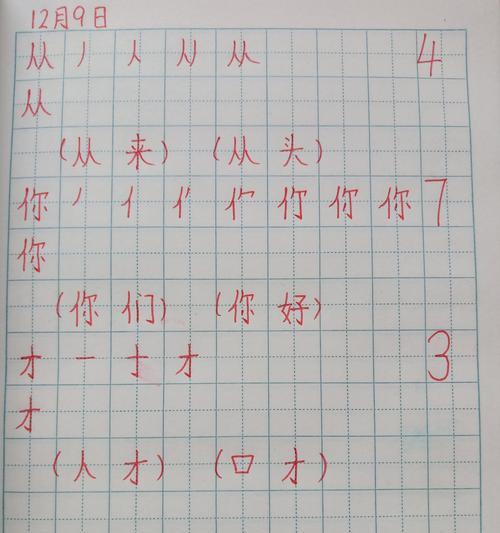 12月9日
从 丿 人 从 4
从
(从 来) (从 头)
你 丿 亻 你 你 7
你
(你 们) (你 好)
才 一 十 才 3
才
(人 才) (口 才)